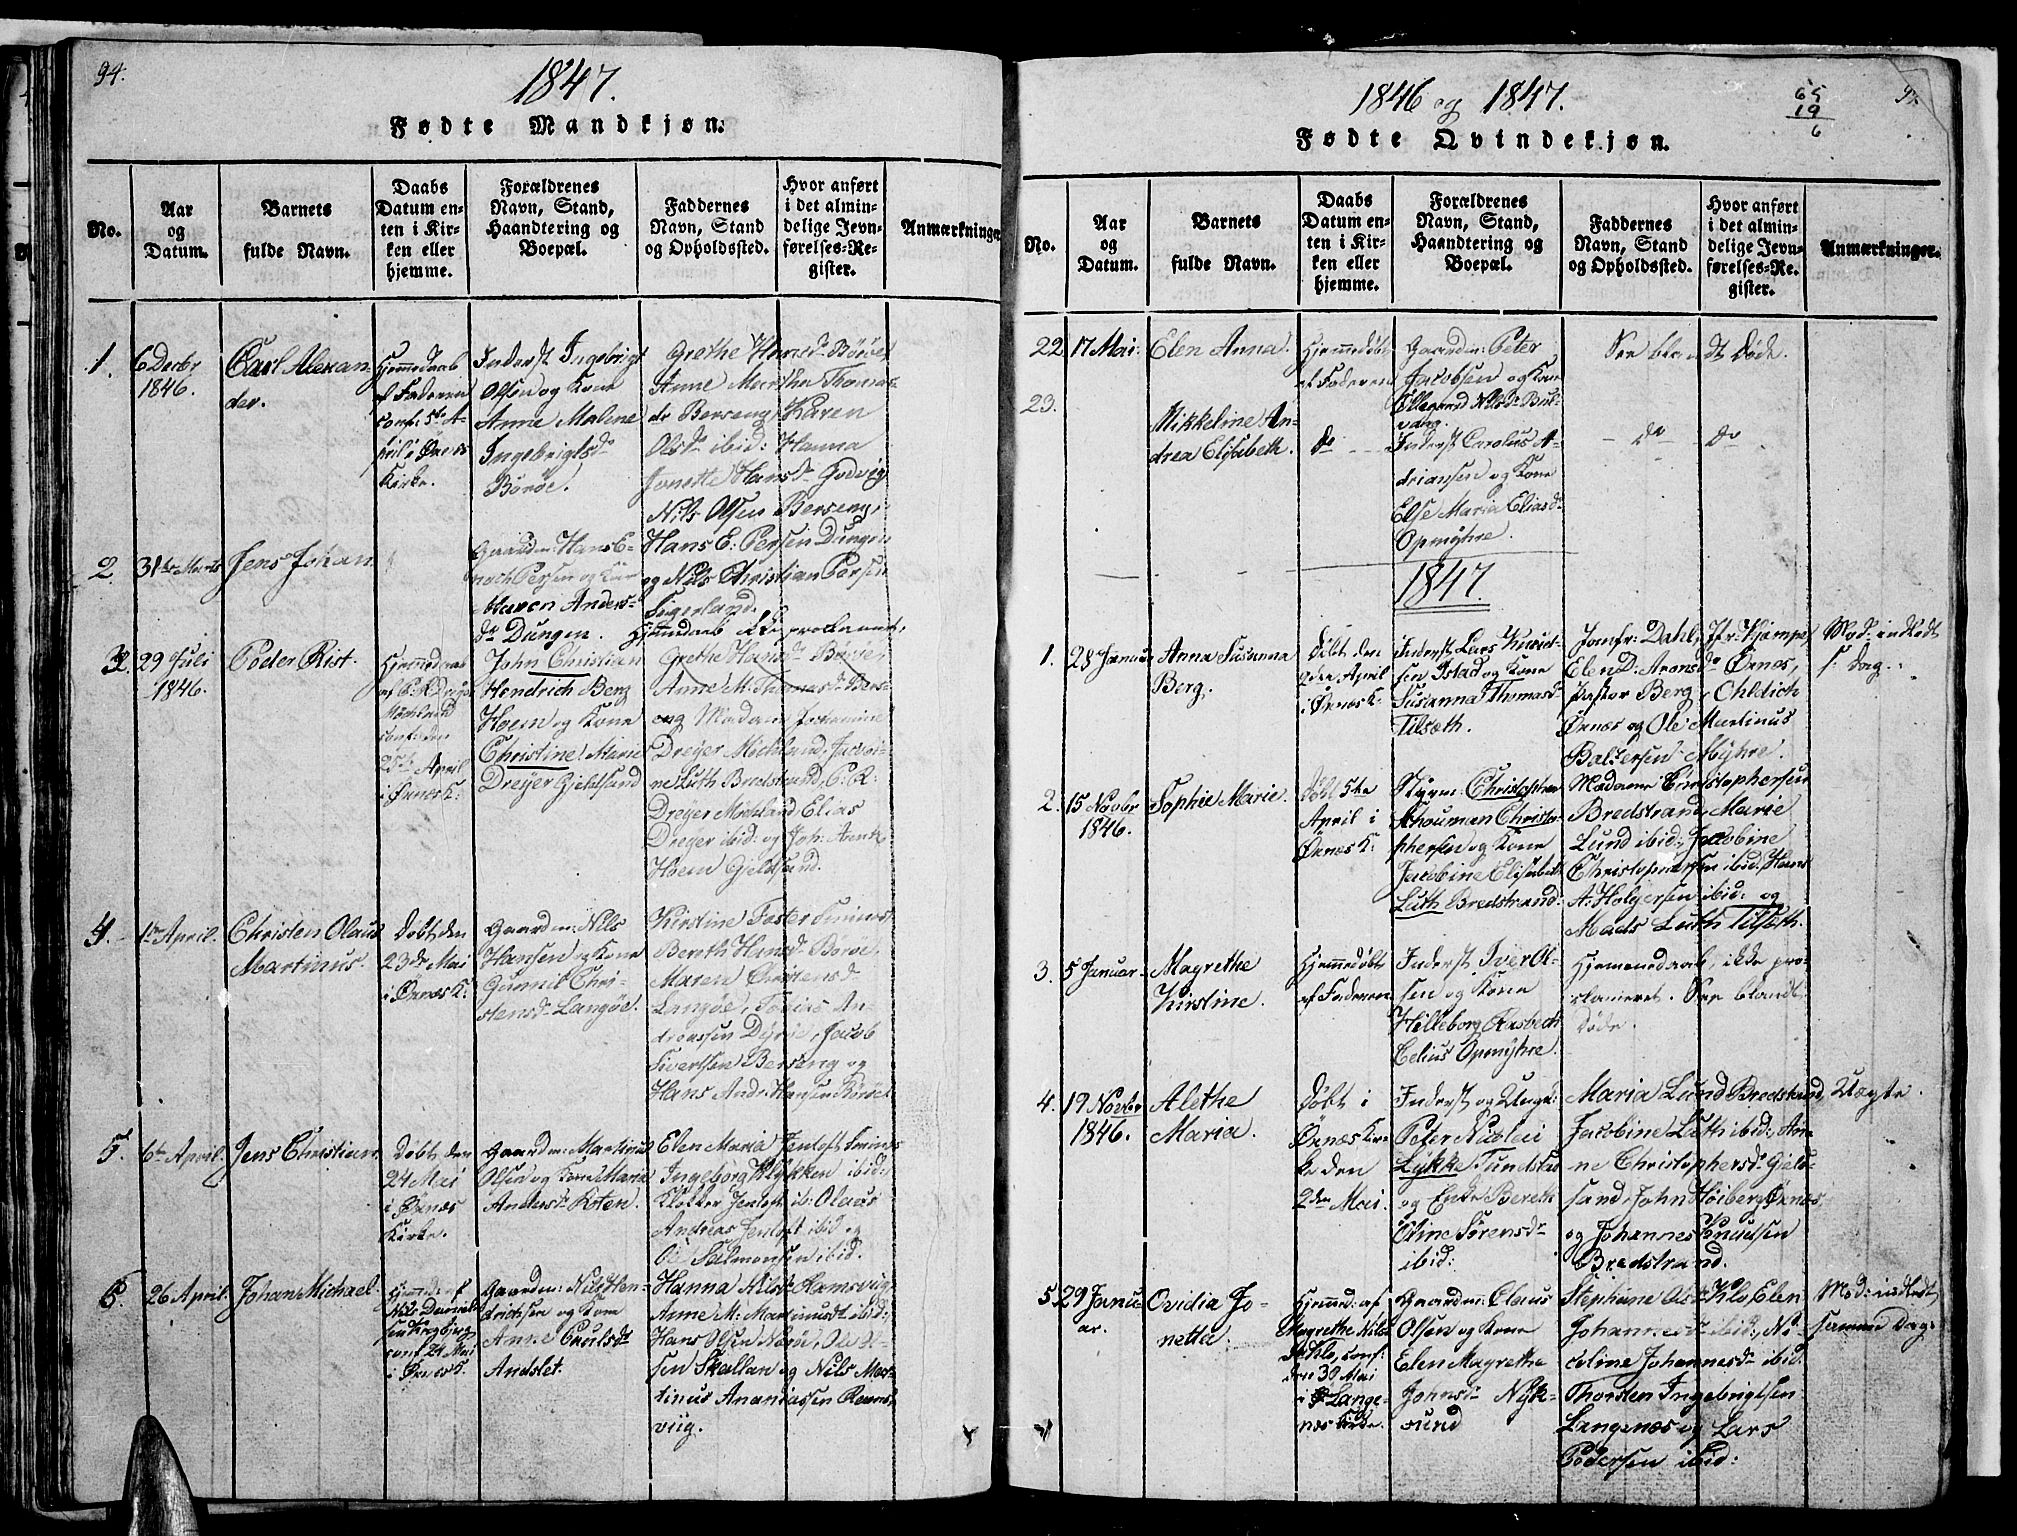 94.
1847.
Fødte Mandkjøn.
No.
Aar
og
Datum.
Barnets
fulde Navn.
Daabs
Datum en-
ten i Kir-
ken eller
hjemme.
Forældrenes
Navn, Stand,
Haandtering og
Boepæl.
Faddernes
Navn, Stand
og Opholdssted.
Hvor anført
i det almin-
delige Jevn-
førelses-Re-
gister.
Anmærkninger
1.
6 Decbr
1846.
Carl Alexan-
der.
Hjemmedaab
af Faderen
conf: 5te A-
pril i Ørnes
Kirke.
Inderst Ingebrigt
Olsen og Kone
Anne Malene
Ingebrigtsdr
Børøe.
Grethe Hansdr Børøe,
Anne Martha Thomas-
dr Berseng, Karen
Olsdr ibid: Hanna
Jonette Hansdr Godvig
Nils Olsen Berseng,
2.
31te Marts
Jens Johan.
Gaardm: Hans E-
noch Persen og Kone
Maren Anders-
dr Dungen.
Hans E: Persen Dungen
og Nils Christian Persen
Sigerland.
Hjemmedaab ikke proclameret,
3.
29 Juli
1846.
Peder Rist.
Hjemmedaab
af P: R Dreyer
Michland
conf: den
25de April
i Ørnes K:
John Christian
Hendrich Benz
Hoem og Kone
Christine Marie
Dreyer Gjeldsand
Grethe Hansdr Børøe,
Anne M: Thomasdr Bers-
eng Madam Johannine
Dreyer Michland, Jacobi-
ne Luth Bredstrand, P: R:
Dreyer Michland, Elias
Dreyer ibid: og Joh: Arntz
Hoem Gjeldsand.
4.
1te April.
Christen Olaus
Martinus.
Døbt den
23de Mai
i Ørnes K:
Gaardm: Nils
Hansen og Kone
Gunnil Chri-
stensdr Langøe.
Kirstine Foster Smines
Bereth Hansdr Børøe,
Maren Christensdr
Langøe, Tobias An-
dreassen Dyrø, Jacob
Sivertsen Berseng og
Hans Andr: Hansen Børøe.
5.
6te April.
Jens Christian.
Døbt den
24 Mai
i Ørnes
Kirke.
Gaardm: Martinus
Olsen og Kone Maria
Andersdr Roten.
Elen Maria Jenloft Smines
Ingeborg Klykken ibid:
Klokker Jenloft ib: Olaus
Andreas Jenloft ibid og
Ole Salmonsen ibid.
6.
26 April.
Johan Michael.
Hjemmed: af
Nils Daniel-
sen Kragberg
conf 24 Mai
i Ørnes K.
Gaardm: Nils Hen-
drichsen og Kone
Anne Paulsdr
Andslet.
Hanna Nilsdr Ramsviig,
Anne M: Martinusdr ibid:
Hans Olsen Børøe, Ole Ol-
sen Skallan og Nils Mar-
tinus Ananiassen Rams-
viig.
1846 og 1847.
65
19
6
Fødte Qvindekjøn.
No.
Aar
og
Datum.
Barnets
fulde Navn.
Daabs
Datum en-
ten i Kir-
ken eller
hjemme.
Forældrenes
Navn, Stand,
Haandtering og
Boepæl.
Faddernes
Navn, Stand
og Opholdssted.
Hvor anført
i det almin-
delige Jevn-
førelses-Re-
gister.
Anmærkninger.
22
17 Mai.
Elen Anna.
Hjemmedøbt
af Faderen
Gaardm: Peter
Jacobsen og Kone
Ellegaard Nilsdr Buk-
vang.
See blandt Døde.
23.
Mikkeline An-
drea Elisabeth.
do
Inderst Carolus A-
driansen og Kone
Else Maria Eliasdr
Opmyhre.
do do
1847.
1.
28 Januar
Anna Susanna
Berg.
Døbt den
2den April
i Ørnes K:
Inderst Lars Knud-
sen Istad og Kone
Susanna Thomasdr
Tilseth.
Jomfr: Dahl, Jfr: Kjempe,
Elen D: Aronsdr Ørnes,
Pastor Berg, Ohldich
Ørnes og Ole Martinus
Baltersen Myhre.
Mod: indledt
s: Dag.
2.
15 Novbr
1846.
Sophie Marie.
Døbt 5te
April i
Ørnes K:
Styrm: Christopher
Schouman Christo-
phersen og Kone
Jacobine Elisabet
Luth Bredstrand:
Madame Christophersen
Bredstrand, Marie
Lund ibid:, Jacobine
Christophersen ibid: Hans
A: Holgersen ibid: og
Mads Luth Tilseth.
3.
5 Januar
Magrethe
Kirstine.
Hjemmedøbt
af Faderen
Inderst Iver Ol-
sen og Kone
Hilleborg Rasbech
Celius Opmyhre.
Hjemmedaab, ikke pro-
clameret. See blandt
Døde.
4.
19 Novbr
1846.
Alethe
Maria.
Døbt i
Ørnes Kir-
ke den
2den Mai.
Inderst og Ungk:
Peter Nicolai
Lykke Tundstad
og Enke Bereth
Oline Sørensdr
ibid:
Maria Lund Bredstrand,
Jacobine Luth ibid:, Kar-
ne Christophersdr Gjeld-
sand, John Høiberg Ørnes,
og Johannes Knudsen
Bredstrand.
Uægte.
5.
29 Janu-
ar.
Ovidia Jo-
netta.
Hjemmed: af
Magrethe Nils-
dr Klo, conf.
den 30 Mai
i Lange-
nes Kirke.
Gaardm: Claus
Olsen og Kone
Elen Magrethe
Johnsdr Nyk-
sund
Stephine Olsdr Klo, Elen
Johannesdr ibid:, Ni-
coline Johannesdr ibid.
Thorsten Ingebrigtsen
Langenæs og Lars
Pedersen ibid:
Mod: indledt
samme Dag.